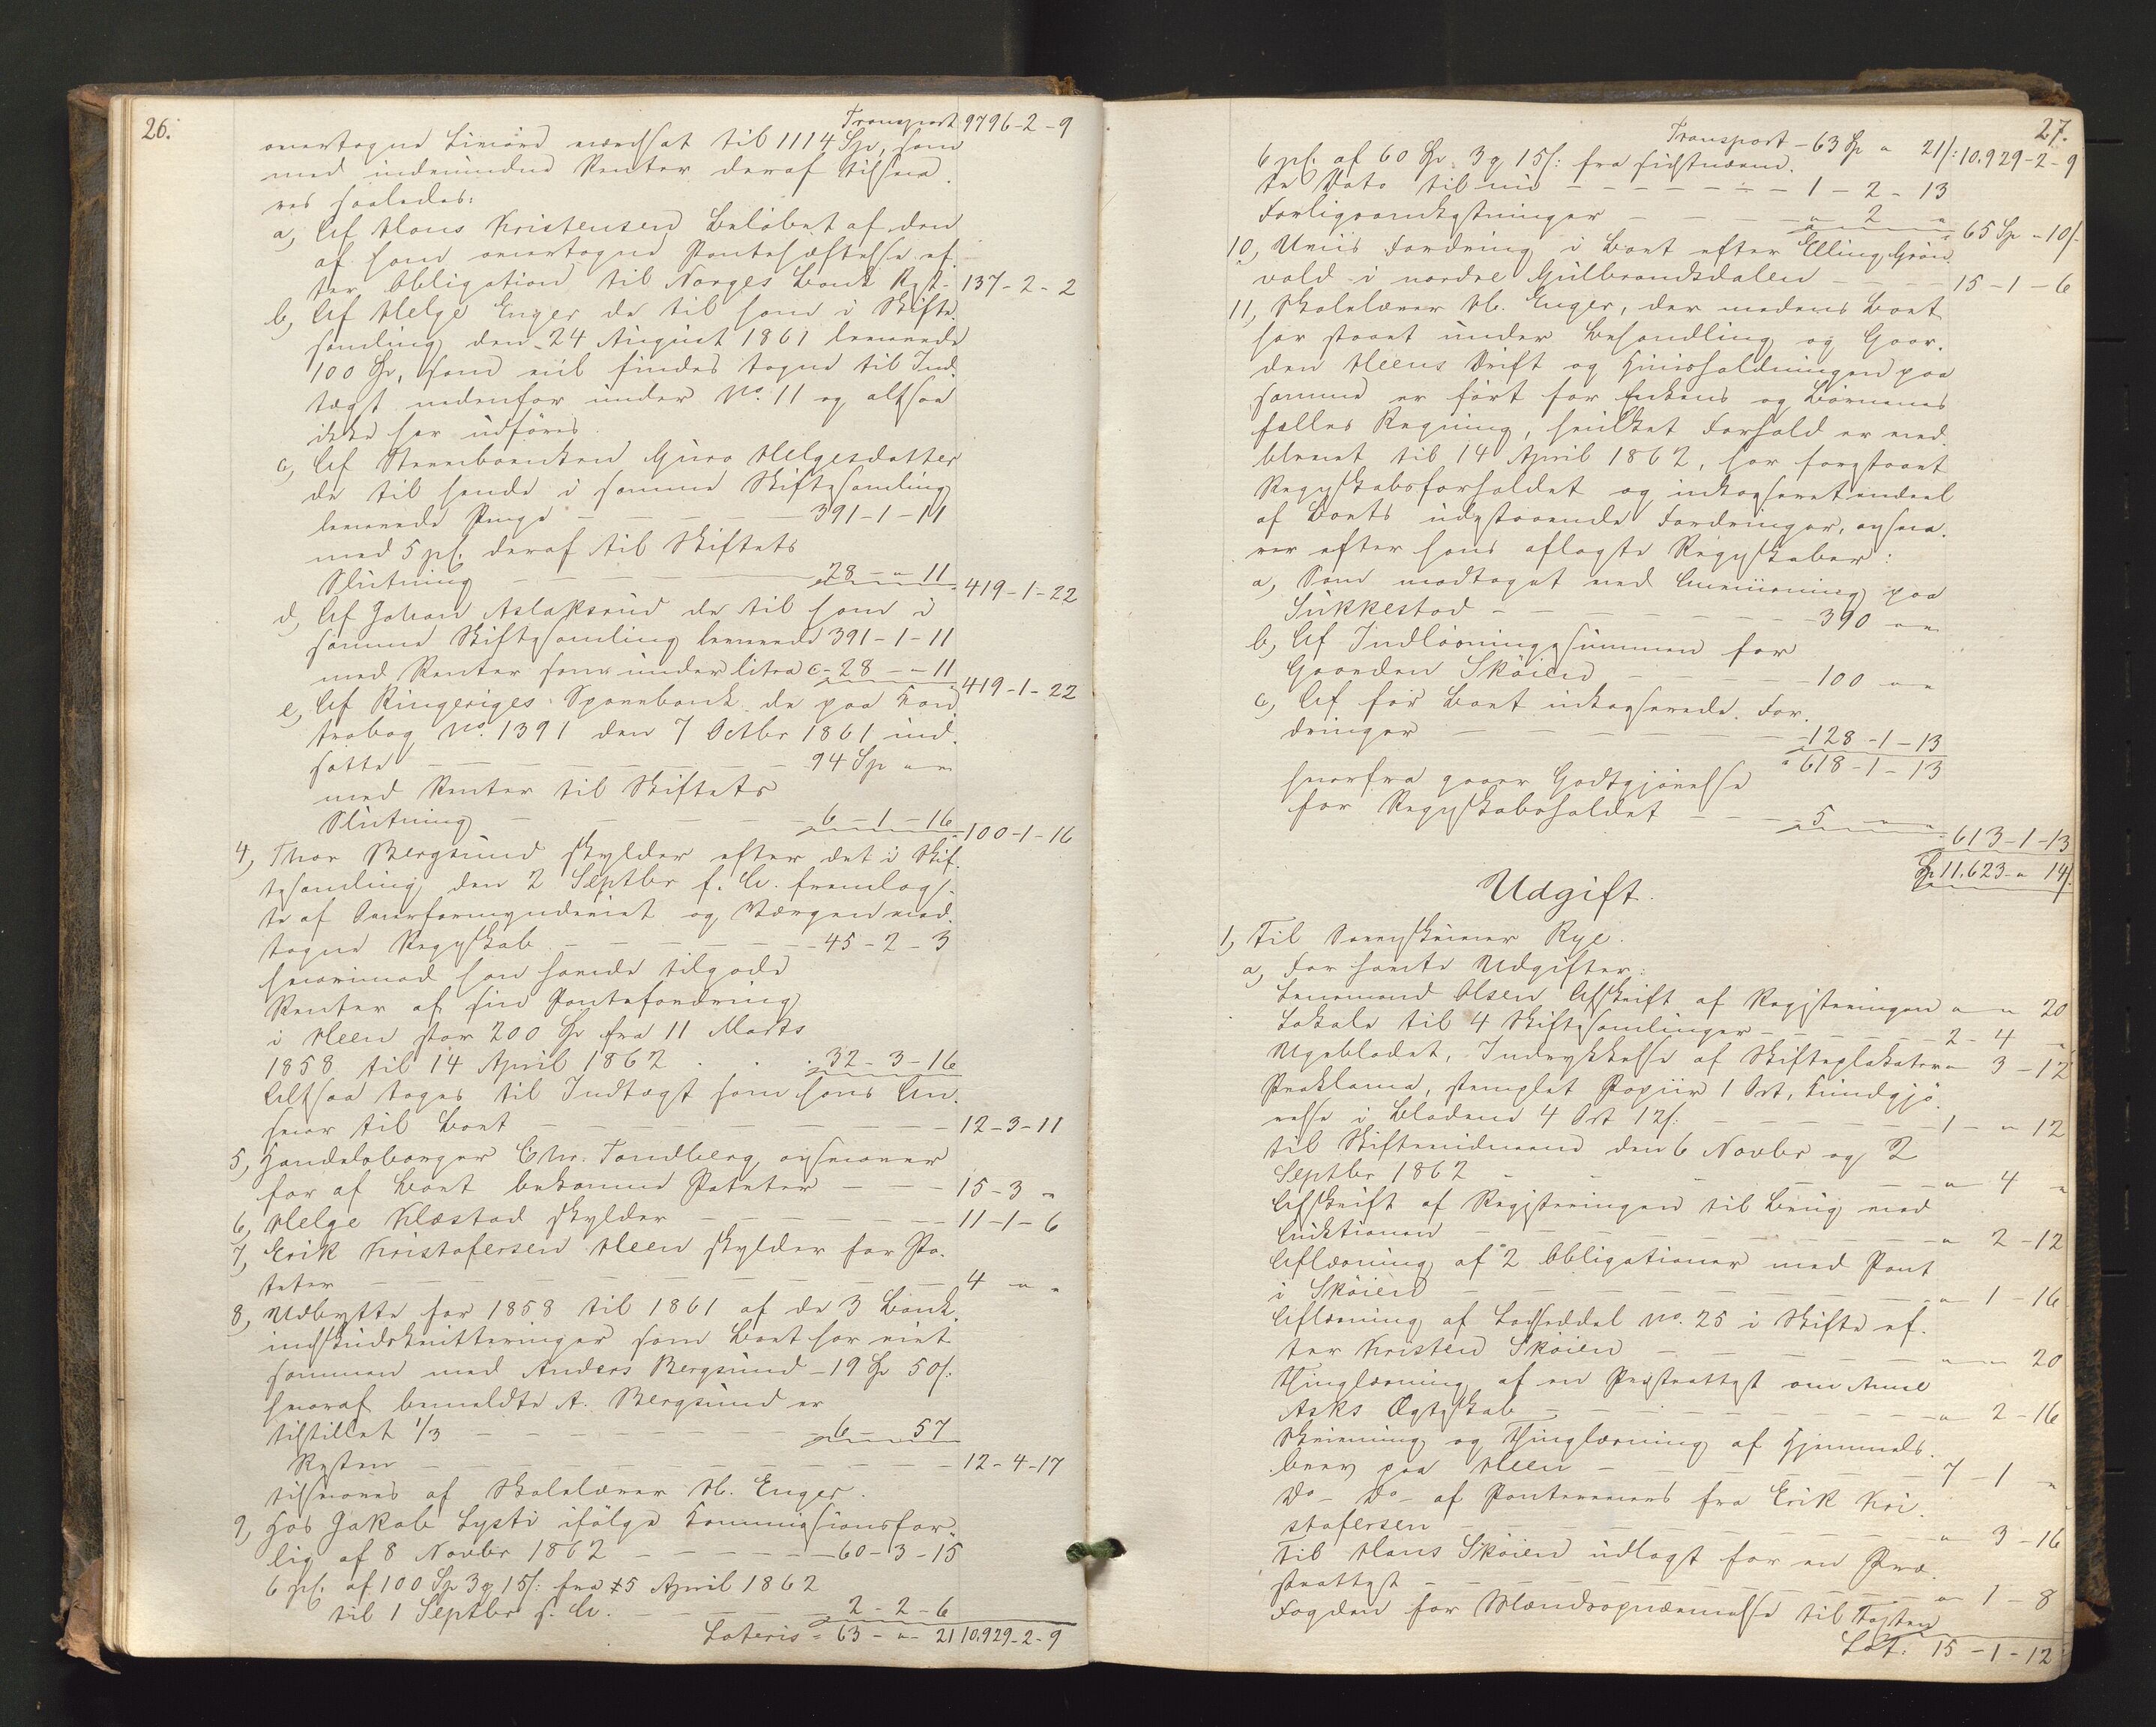 26.
Transport 9796-2-9
overtagne Livöre værdsat til 1114 Sp, som
med indvundne Renter deraf tilsva-
res saaledes:
a, Af Hans Kristensen Beløbet af den
af ham overtagne Panteheftelse ef-
ter Obligation til Norges Bank Rest - 137-2-2
b, Af Helge Enger de til ham i Skifte-
samling den 24 August 1861 leverede
100 Sp, som vil findes tagne til Ind-
tægt nedenfor under No. 11 og altsaa
ikke her udföres.
c, Af Stervboenken Guro Helgesdatter
de til hende i samme Skiftesamling
leverede Penge - - - - 391-1-11
med 5 pC. deraf til Skiftets
Slutning - - - - 28 - " 11
419-1-22
d, Af Johan Aslaksrud de til ham i
samme Skiftesamling leverede 391-1-11
med Renter som under litra c - 28 - " - 11
419-1-22
e, Af Ringeriges Sparebank de paa Kon-
trabog No. 1391 den 7 Octbr 1861 ind-
satte - - - - 94 Sp " "
med Renter til Skiftets
Slutning - - - - 6-1-16
100-1-16
4, Thor Bergsund skylder efter det i Skif-
tesamling den 2 Septbr f. A. fremlag-
te af Overformynderiet og Værgen mod-
tagne Regnskab - - - - 45-2-3
hvorimod han havde tilgode
Renter af sin Pantefordring
i Heen stor 200 Sp fra 11 Marts
1858 til 14 April 1862 . . . 32-3-16
Altsaa tages til Indtægt som hans An-
svar til Boet - - - - 12-3-11
5, Handelsborger Chr. Tandberg ansvarer
for af Boet bekomne Poteter - - - 15-3 "
6, Helge Klæstad skylder - - - - 11-1-6
7, Erik Kristofersen Heen skylder for Po-
teter - - - - 4 " "
8, Udbytte for 1858 til 1861 af de 3 Bank-
indskudskvitteringer som Boet har eiet
sammen med Anders Bergsund - 19 Sp 50 s.
hvoraf bemeldte A. Bergsund er
tilstillet 1/3 - - - - 6 - 57
Resten - - - - 12-4-17
tilsvares af Skolelærer H. Enger.
9, Hos Jakob Lysti ifölge Kommissionsfor-
lig af 8 Novbr 1862 - - - - 60-3-15
6 pC. af 100 Sp 3 15 s: fra 5 April 1862
til 1 Septbr s. A. - - - - 2-2-6
Lateris - 63 - " - 21 10,929-2-9
27.
Transport - 63 Sp " 21 s: 10,929-2-9
6 pC. af 60 Sp 3 15 s: fra sidstnævn-
te Dato til nu - - - - 1-2-13
Forligsomkostninger - - - - " 2 "
65 Sp " 10 s.
10, Uviis Fordring i Boet efter Elling Grön-
vold i nordre Gulbrandsdalen - - - 15-1-6
11, Skolelærer H. Enger, der medens Boet
har staaet under Behandling og Gaar-
den Heens Drift og Huusholdningen paa
samme er fört for Enkens og Börnenes
fælles Regning, hvilket Forhold er ved-
blevet til 14 April 1862, har forestaaet
Regnskabsforholdet og inkasseret endeel
af Boets udestaaende Fordringer, ansva-
rer efter hans aflagte Regnskaber:
a, Som modtaget ved Anviisning paa
Sukkestad - - - - 390 " "
b, Af Indlösningssummen for
Gaarden Sköien - - - - 100 " "
c, Af for Boet inkasserede For-
dringer - - - - 128-1-13
618-1-13
hvorfra gaaer Godtgjörelse
for Regnskabsholdet - - - 5 " "
613-1-13
Sp 11,623 - " 14 s.
Udgift.
1, Til Sorenskriver Rye.
a, For havte Udgifter:
Lensmand Olsen Afskrift af Registreringen " " 20
Lokale til 4 Skiftesamlinger - - - - 2-4 "
Ugebladet, Indrykkelse af Skifteplakater " 3-12
Proklama, stemplet Papiir 1 Ort, Kundgjö-
relse i Bladene 4 Ort 12 s: - - - - 1 - " 12
Til Skiftevidnerne den 6 Novbr og 2
Septbr 1862 - - - - " 4 "
Afskrift af Registreringen til Brug ved
Auktionen - - - - " 2-12
Aflæsning af 2 Obligationer med Pant
i Sköien - - - - " 1-16
Aflæsning af Lodseddel No. 25 i Skifte ef-
ter Kristen Sköien - - - - " " 20
Thinglæsning af en Præsteattest om Anne
Asks Ægteskab - - - - " 2-16
Skrivning og Thinglæsning af Hjemmels-
brev paa Heen - - - - 7-1 "
Do - Do - af Pantebrevet fra Erik Kri-
stofersen - - - - " 3-16
Til Hans Sköien udlagt for en Præ-
steattest - - - - " 1-8
Fogden for Mændsopnævnelse til Taxten
Lat: 15-1-12